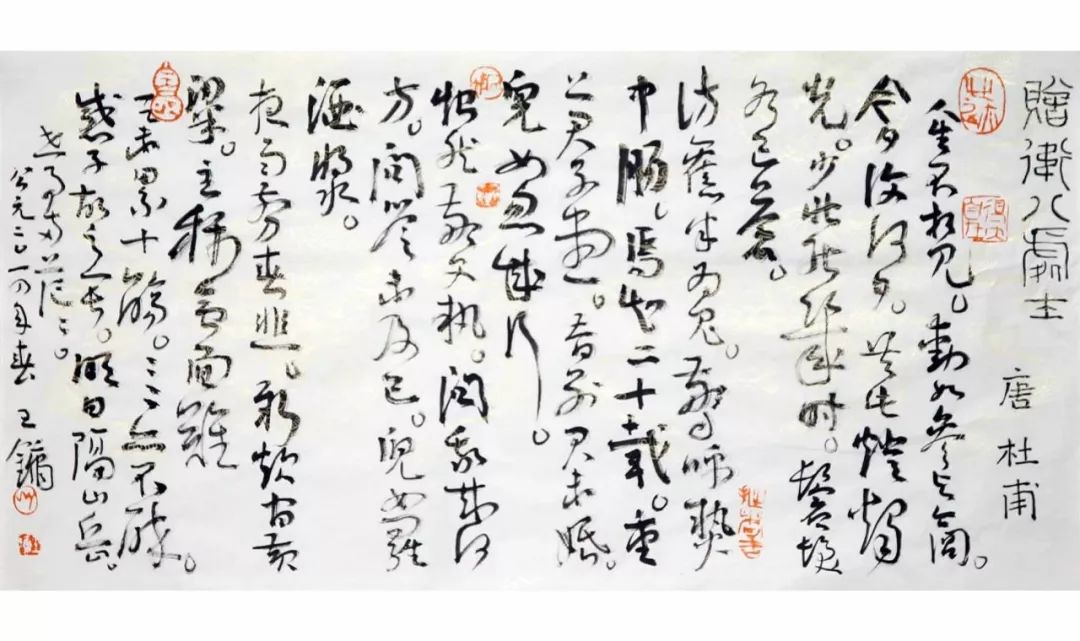 贈衛八處士 唐 杜甫
人生不相見。動如參与商。
今夕復何夕。共此燈燭
光。少壯能幾時。鬢髮
各已蒼。
訪舊半為鬼。驚呼熱
中腸。焉知二十載。重
上君子堂。昔別君未婚。
兒女忽成行。
怡然敬父執。問我来何
方。問答未及已。兒女羅
酒漿。
夜雨剪春韭。新炊间黄
粱。主稱會面難
一舉累十觴。〻〻亦不醉。
感子故意長。明日隔山岳。
世事兩茫〻。
公元二〇一四年春 王鏞